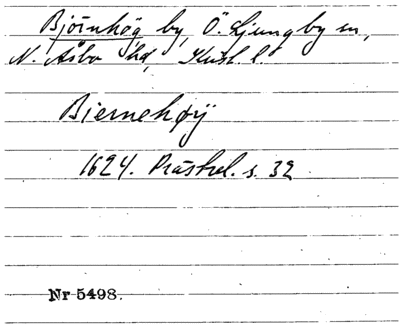 Björnhög by, Ö. Ljungby sn,
N. Åsbo hd, Krist. l.
Biernehøÿ
1624. Prästrel. s. 32
Nr 5498.